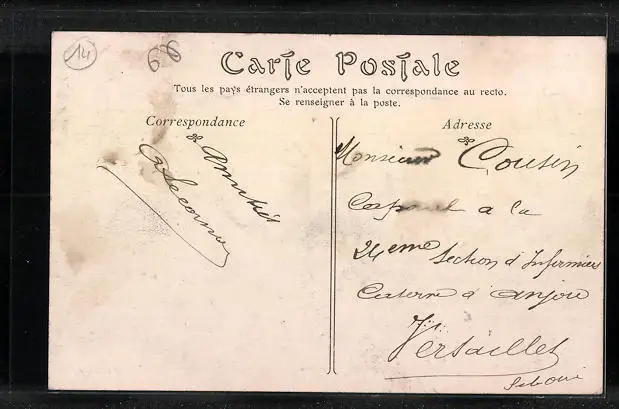 14
Carte Postale
Tous les pays étrangers n'acceptent pas la correspondance au recto.
Se renseigner à la poste.
Correspondance
Amitiés
Lecornu
Adresse
Monsieur Cousin
Caporal a la
24eme Section d'Infirmiers
Caserne d'anjou
Versailles